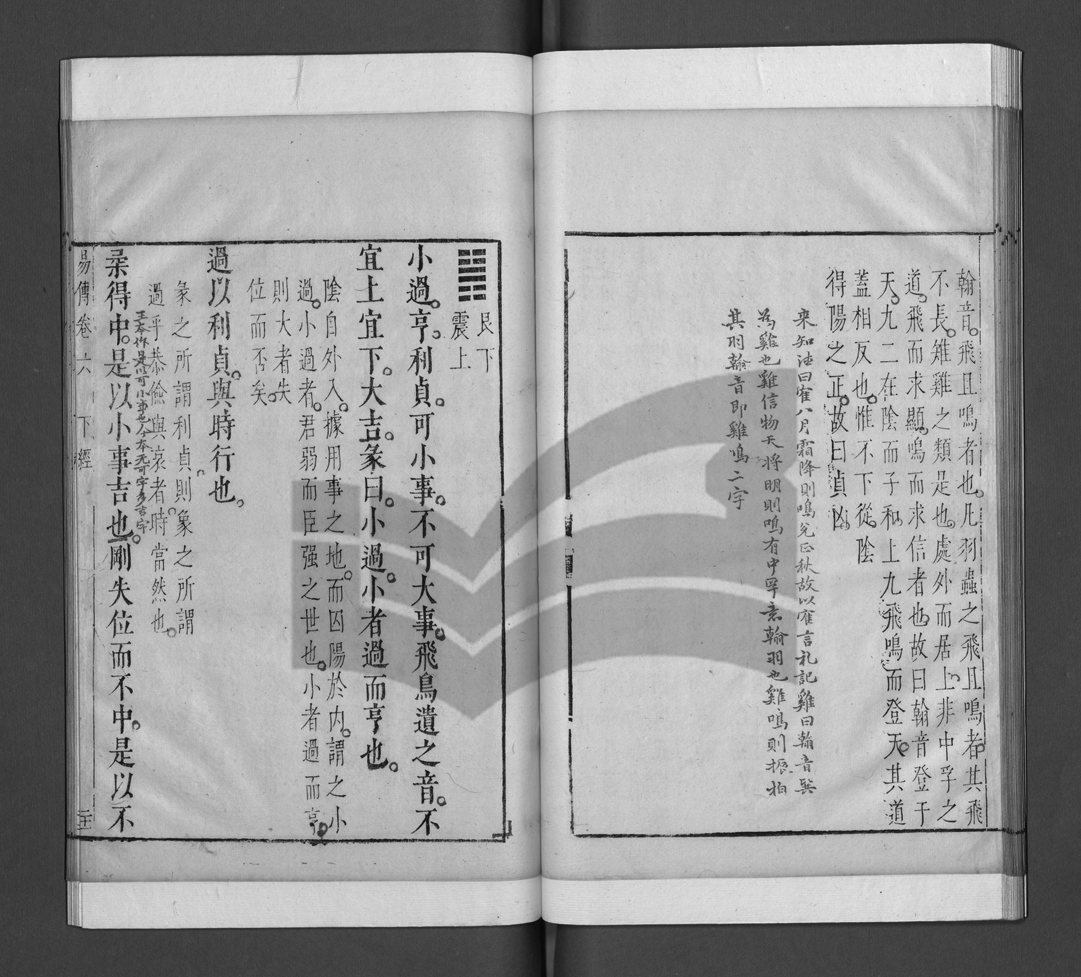 翰音。飛且鳴者也。凡羽蟲之飛且鳴者。其飛
不長。雉雞之類是也。處外而居上。非中孚之
道。飛而求顯。鳴而求信者也。故曰翰音登于
天。九二在陰而子和。上九飛鳴而登天。其道
蓋相反也。惟不下從陰
得陽之正。故曰貞凶。
來知德曰雀八月霜降則鳴兌正秋故以雀言礼記雞曰翰音巽
為雞也雞信物天將明則鳴有中孚意翰羽也雞鳴則振拍
其羽翰音即雞鳴二字
䷽
艮下
震上
小過。亨。利貞。可小事。不可大事。飛鳥遺之音。不
宜上宜下。大吉。彖曰。小過。小者過而亨也。
陰自外入。據用事之地。而囚陽於內。謂之小
過。小過者。君弱而臣强之世也。小者過而亨。
則大者失
位而否矣。
過以利貞。與時行也。
彖之所謂利貞。則象之所謂
過乎恭儉與哀者。時當然也。
柔得中。是以小事吉也。剛失位而不中。是以不
王本作是以可小事也今本无可字多吉字
易傳卷六 下經